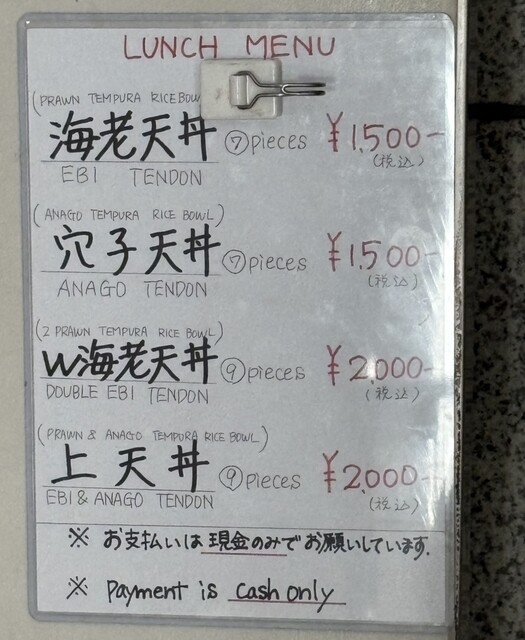 LUNCH MENU
(PRAWN TEMPURA RICE BOWL
海老天丼 ⑦pieces ¥1,500-
EBI TENDON (税込)
(ANAGO TEMPURA RICE BOWL)
穴子天丼 ⑦pieces ¥1,500-
ANAGO TENDON (税込)
(2 PRAWN TEMPURA RICE BOWL)
W海老天丼 ⑨pieces ¥2,000-
DOUBLE EBI TENDON (税込)
(PRAWN & ANAGO TEMPURA RICE BOWL)
上天丼 ⑨pieces ¥2,000-
EBI & ANAGO TENDON (税込)
※ お支払いは現金のみでお願いしています.
※ Payment is cash only